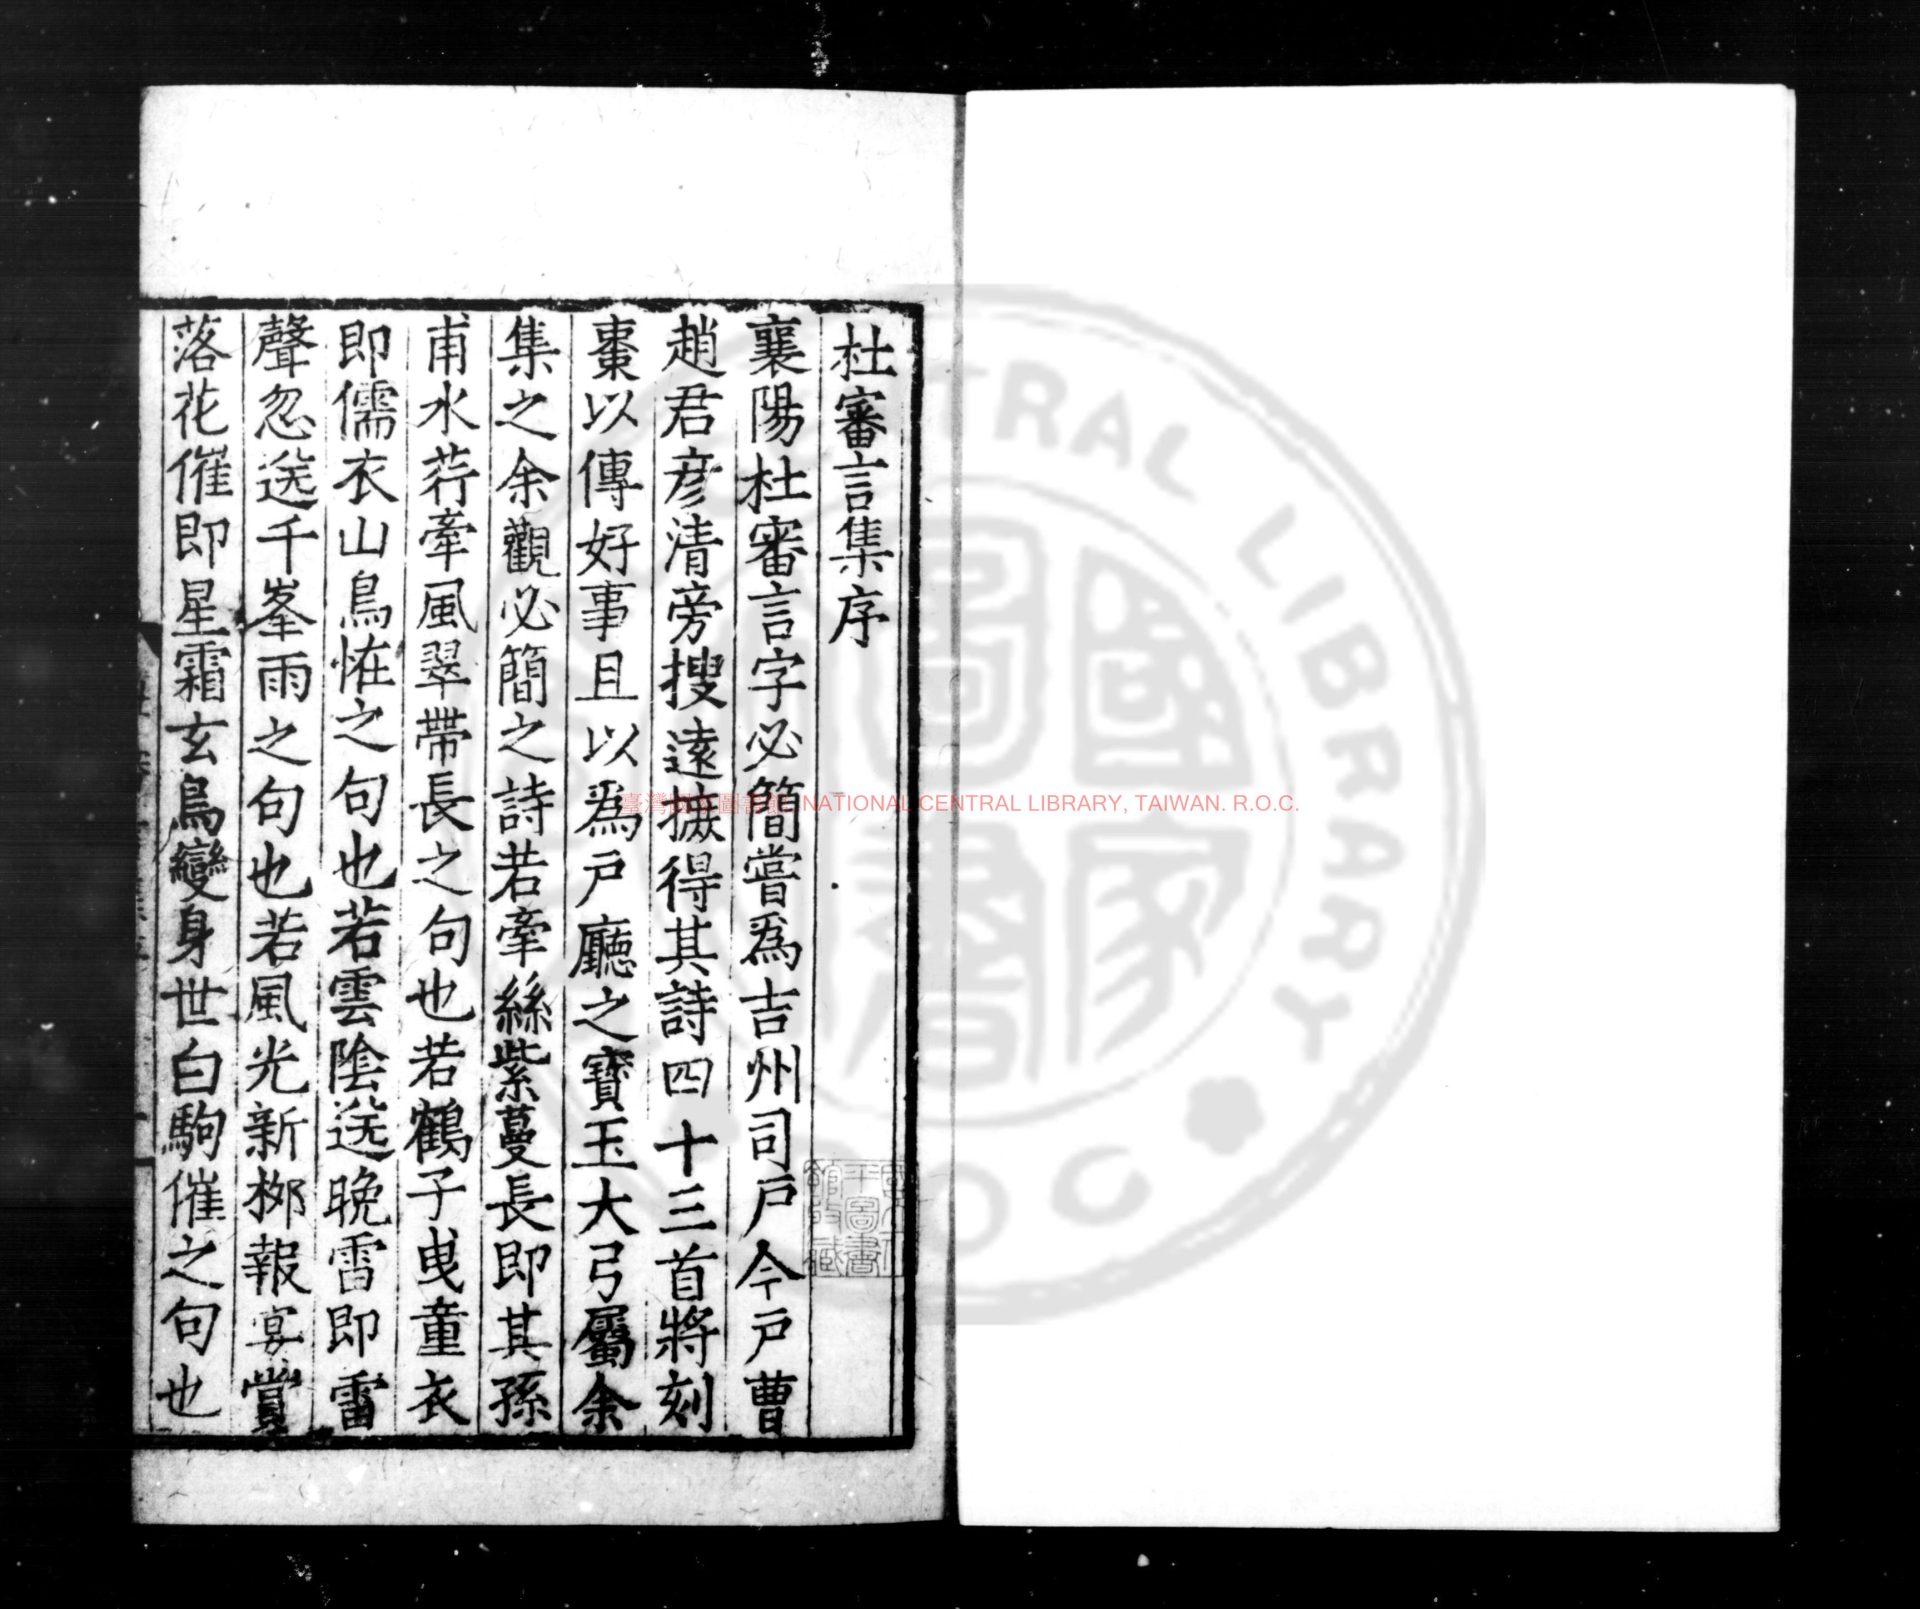 杜審言集序
襄陽杜審言字必簡嘗爲吉州司戶今戶曹
趙君彦清旁搜遠摭得其詩四十三首將刻
棗以傳好事且以爲戶廳之寶玉大弓屬余
集之余觀必簡之詩若牽絲紫蔓長即其孫
甫水荇牽風翠帶長之句也若鶴子曳童衣
即儒衣山鳥恠之句也若雲陰送晚雷即雷
聲忽送千峯雨之句也若風光新柳報宴賞
落花催即星霜玄鳥變身世白駒催之句也
臺灣國家圖書館 NATIONAL CENTRAL LIBRARY, TAIWAN. R.O.C.
CENTRAL LIBRARY
國家圖書